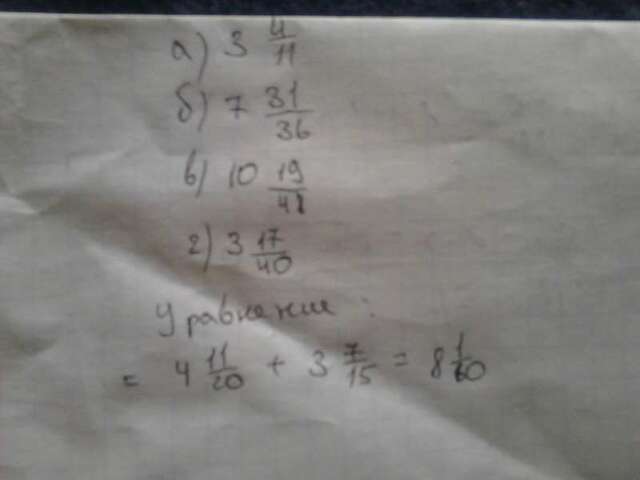 а) 3 4/11
б) 7 31/36
в) 10 19/41
г) 3 17/40
Уравнение:
= 4 11/20 + 3 7/15 = 8 1/60